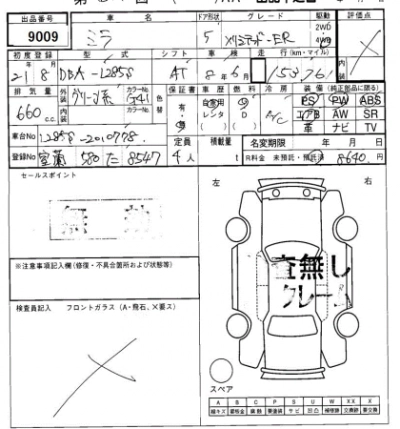 出品番号 車名 ドア形状 グレード 駆動 評価点
9009 ミラ 5 2WD 4WD
初度登録 型式 シフト 車検 走行(km・マイル) 内装
21 8 DBA-L285S AT 8年6月
排気量 外装 カラーNo. 色替 保証書 車歴 燃料 冷房 装備(純正部品に限る)
660 cc 内装 カラーNo. 有・無 自家用 レンタ G D A/C PS PW ABS
エアB AW SR
革 ナビ TV
車台No L285S-2010778 定員 積載量 名変期限 年 月 日
登録No 室蘭 580 た 8547 4人 t R料金 未預託・預託済 8640円
セールスポイント 左 右
無効
※注意事項記入欄(修復・不具合箇所および状態等)
査無し
クレーム
検査員記入 フロントガラス(A・飛石、×要ス)
スペア
A B C P S U W X XX